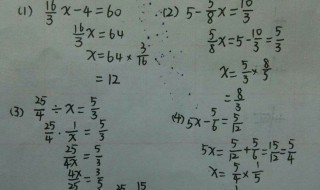 (1) 16/3 x - 4 = 60
16/3 x = 64
x = 64 × 3/16
= 12
(2) 5 - 5/8 x = 10/3
5/8 x = 5 - 10/3 = 5/3
x = 5/3 × 8/5
= 8/3
(3) 25/4 ÷ x = 5/3
25/4 · 1/x = 5/3
25/4x = 5/3
4x/25 = 3/5
(4) 5x - 5/6 = 5/12
5x = 5/12 + 5/6 = 15/12 = 5/4
x = 5/4 × 1/5